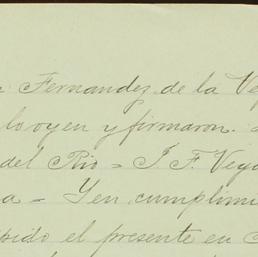 Fernandez de la Veg
lo oyen y firmaron.
del Rio = J F. Vega
a = Y en cumplimi
pido el presente en